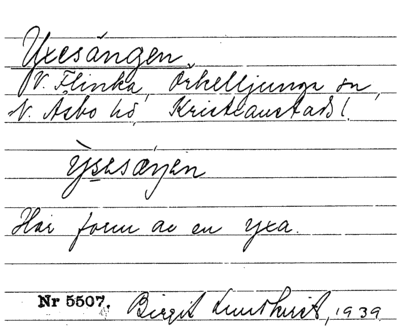 Yxesängen
V. Flinka, Örkelljunga sn,
N. Åsbo hd, Kristianstads l.
Har form av en yxa.
Nr 5507. Birgit Lundkvist, 1939